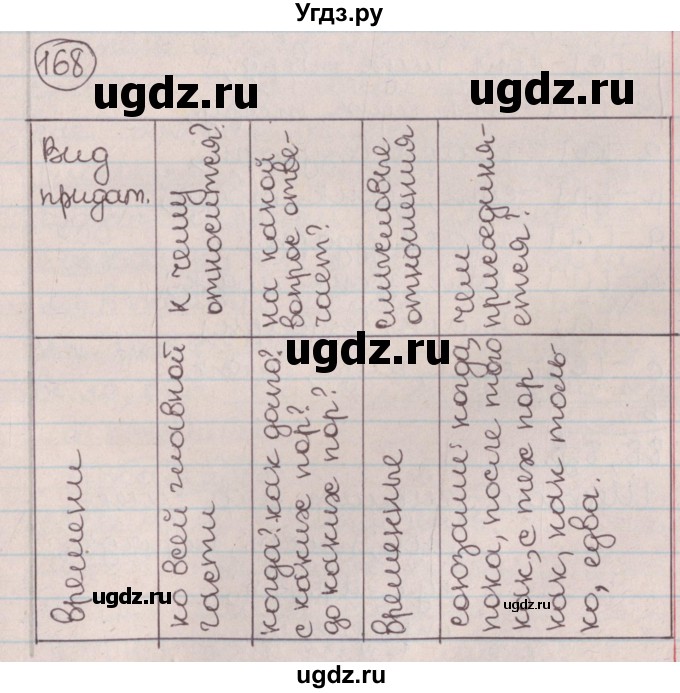 Угдз.ру
168
ugdz.ru
ugdz.ru
Вид
придат.
к чему
относится?
на какой
вопрос отве-
чает?
смысловые
отношения
чем
присоединя-
ется?
времени
ко всей главной
части
когда? как долго?
с каких пор?
до каких пор?
временные
союзами: когда,
пока, после того
как, с тех пор
как, как толь
ко, едва.
ugdz.ru
ugdz.ru
ugdz.ru
ugdz.ru
ugdz.ru